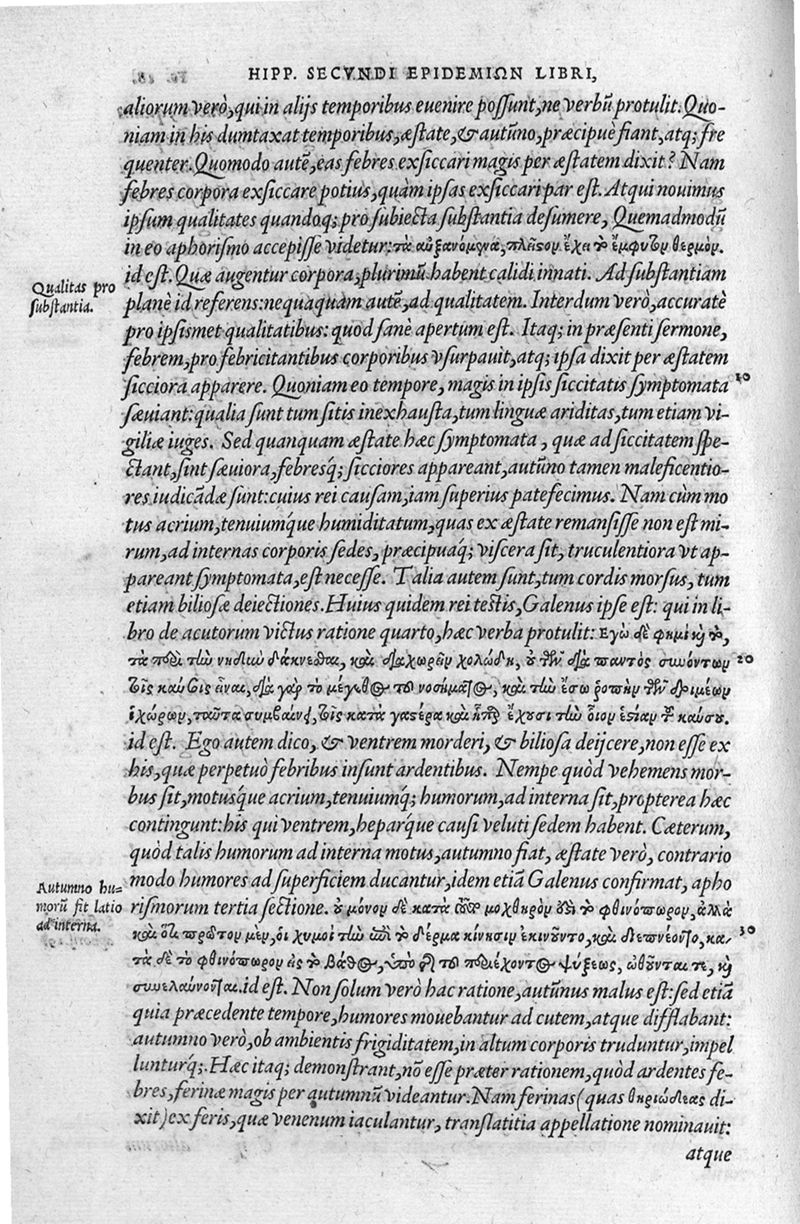 HIPP. SECVNDI EPIDEMIΩN LIBRI,
aliorum verò, qui in alijs temporibus euenire possunt, ne verbũ protulit. Quo-
niam in his dumtaxat temporibus, æstate, & autũno, præcipuè fiant, atq; fre
quenter. Quomodo autẽ, eas febres exsiccari magis per æstatem dixit? Nam
febres corpora exsiccare potius, quàm ipsas exsiccari par est. Atqui nouimus
ipsum qualitates quandoq; pro subiecta substantia desumere, Quemadmodũ
in eo aphorismo accepisse videtur: τὰ αὐξανόμενα, πλεῖστον ἔχει τὸ ἔμφυτον θερμὸν.
id est. Quæ augentur corpora, plurimũ habent calidi innati. Ad substantiam
Qualitas pro
substantia.
planè id referens: nequaquàm autẽ, ad qualitatem. Interdum verò, accuratè
pro ipsismet qualitatibus: quod sanè apertum est. Itaq; in præsenti sermone,
febrem, pro febricitantibus corporibus vsurpauit, atq; ipsa dixit per æstatem
sicciora apparere. Quoniam eo tempore, magis in ipsis siccitatis symptomata 10
sæuiant: qualia sunt tum sitis inexhausta, tum linguæ ariditas, tum etiam vi-
giliæ iuges. Sed quanquam æstate hæc symptomata, quæ ad siccitatem spe-
ctant, sint sæuiora, febresq́; sicciores appareant, autũno tamen maleficentio-
res iudicãdæ sunt: cuius rei causam, iam superius patefecimus. Nam cùm mo
tus acrium, tenuiumq́ue humiditatum, quas ex æstate remansisse non est mi-
rum, ad internas corporis sedes, præcipuaq́; viscera sit, truculentiora vt ap-
pareant symptomata, est necesse. Talia autem sunt, tum cordis morsus, tum
etiam biliosæ deiectiones. Huius quidem rei testis, Galenus ipse est: qui in li-
bro de acutorum victus ratione quarto, hæc verba protulit: Εγὼ δὲ φημὶ καὶ τὸ,
τὰ περὶ τὴν νηδὺν δάκνεσθαι, καὶ διαχωρεῖν χολώδη, οὐ τῶν διὰ παντὸς συνόντων 20
τοῖς καύσοις εἶναι, διὰ γὰρ τὸ μέγεθος τοῦ νοσήματος, καὶ τὴν ἔσω ῥοπὴν τῶν δριμέων
ἰχώρων, ταῦτα συμβαίνει, τοῖς κατὰ γαστέρα καὶ ἧπαρ ἔχουσι τὴν οἷον ἑστίαν τοῦ καύσου.
id est. Ego autem dico, & ventrem morderi, & biliosa deijcere, non esse ex
his, quæ perpetuò febribus insunt ardentibus. Nempe quòd vehemens mor-
bus sit, motusq́ue acrium, tenuiumq́; humorum, ad interna sit, propterea hæc
contingunt: his qui ventrem, heparq́ue causi veluti sedem habent. Cæterum,
quòd talis humorum ad interna motus, autumno fiat, æstate verò, contrario
Autumno hu=
morũ fit latio
ad interna.
modo humores ad superficiem ducantur, idem etiã Galenus confirmat, apho
rismorum tertia sectione. οὐ μόνον δὲ κατὰ τοῦτο μοχθηρὸν ἐστι τὸ φθινόπωρον, ἀλλὰ
καὶ ὅτι πρῶτον μὲν, οἱ χυμοὶ τὴν ἐπὶ τὸ δέρμα κίνησιν ἐκινοῦντο, καὶ διεπνέοντο, κα- 30
τὰ δὲ τὸ φθινόπωρον εἰς τὸ βάθος, ὑπὸ τῆς τοῦ περιέχοντος ψύξεως, ὠθοῦνται τε, καὶ
συνελαύνονται. id est. Non solum verò hac ratione, autũnus malus est: sed etiã
quia præcedente tempore, humores mouebantur ad cutem, atque difflabant:
autumno verò, ob ambientis frigiditatem, in altum corporis truduntur, impel
lunturq́;. Hæc itaq; demonstrant, nõ esse præter rationem, quòd ardentes fe-
bres, ferinæ magis per autumnũ videantur. Nam ferinas (quas θηριώδεας di-
xit) ex feris, quæ venenum iaculantur, translatitia appellatione nominauit:
atque